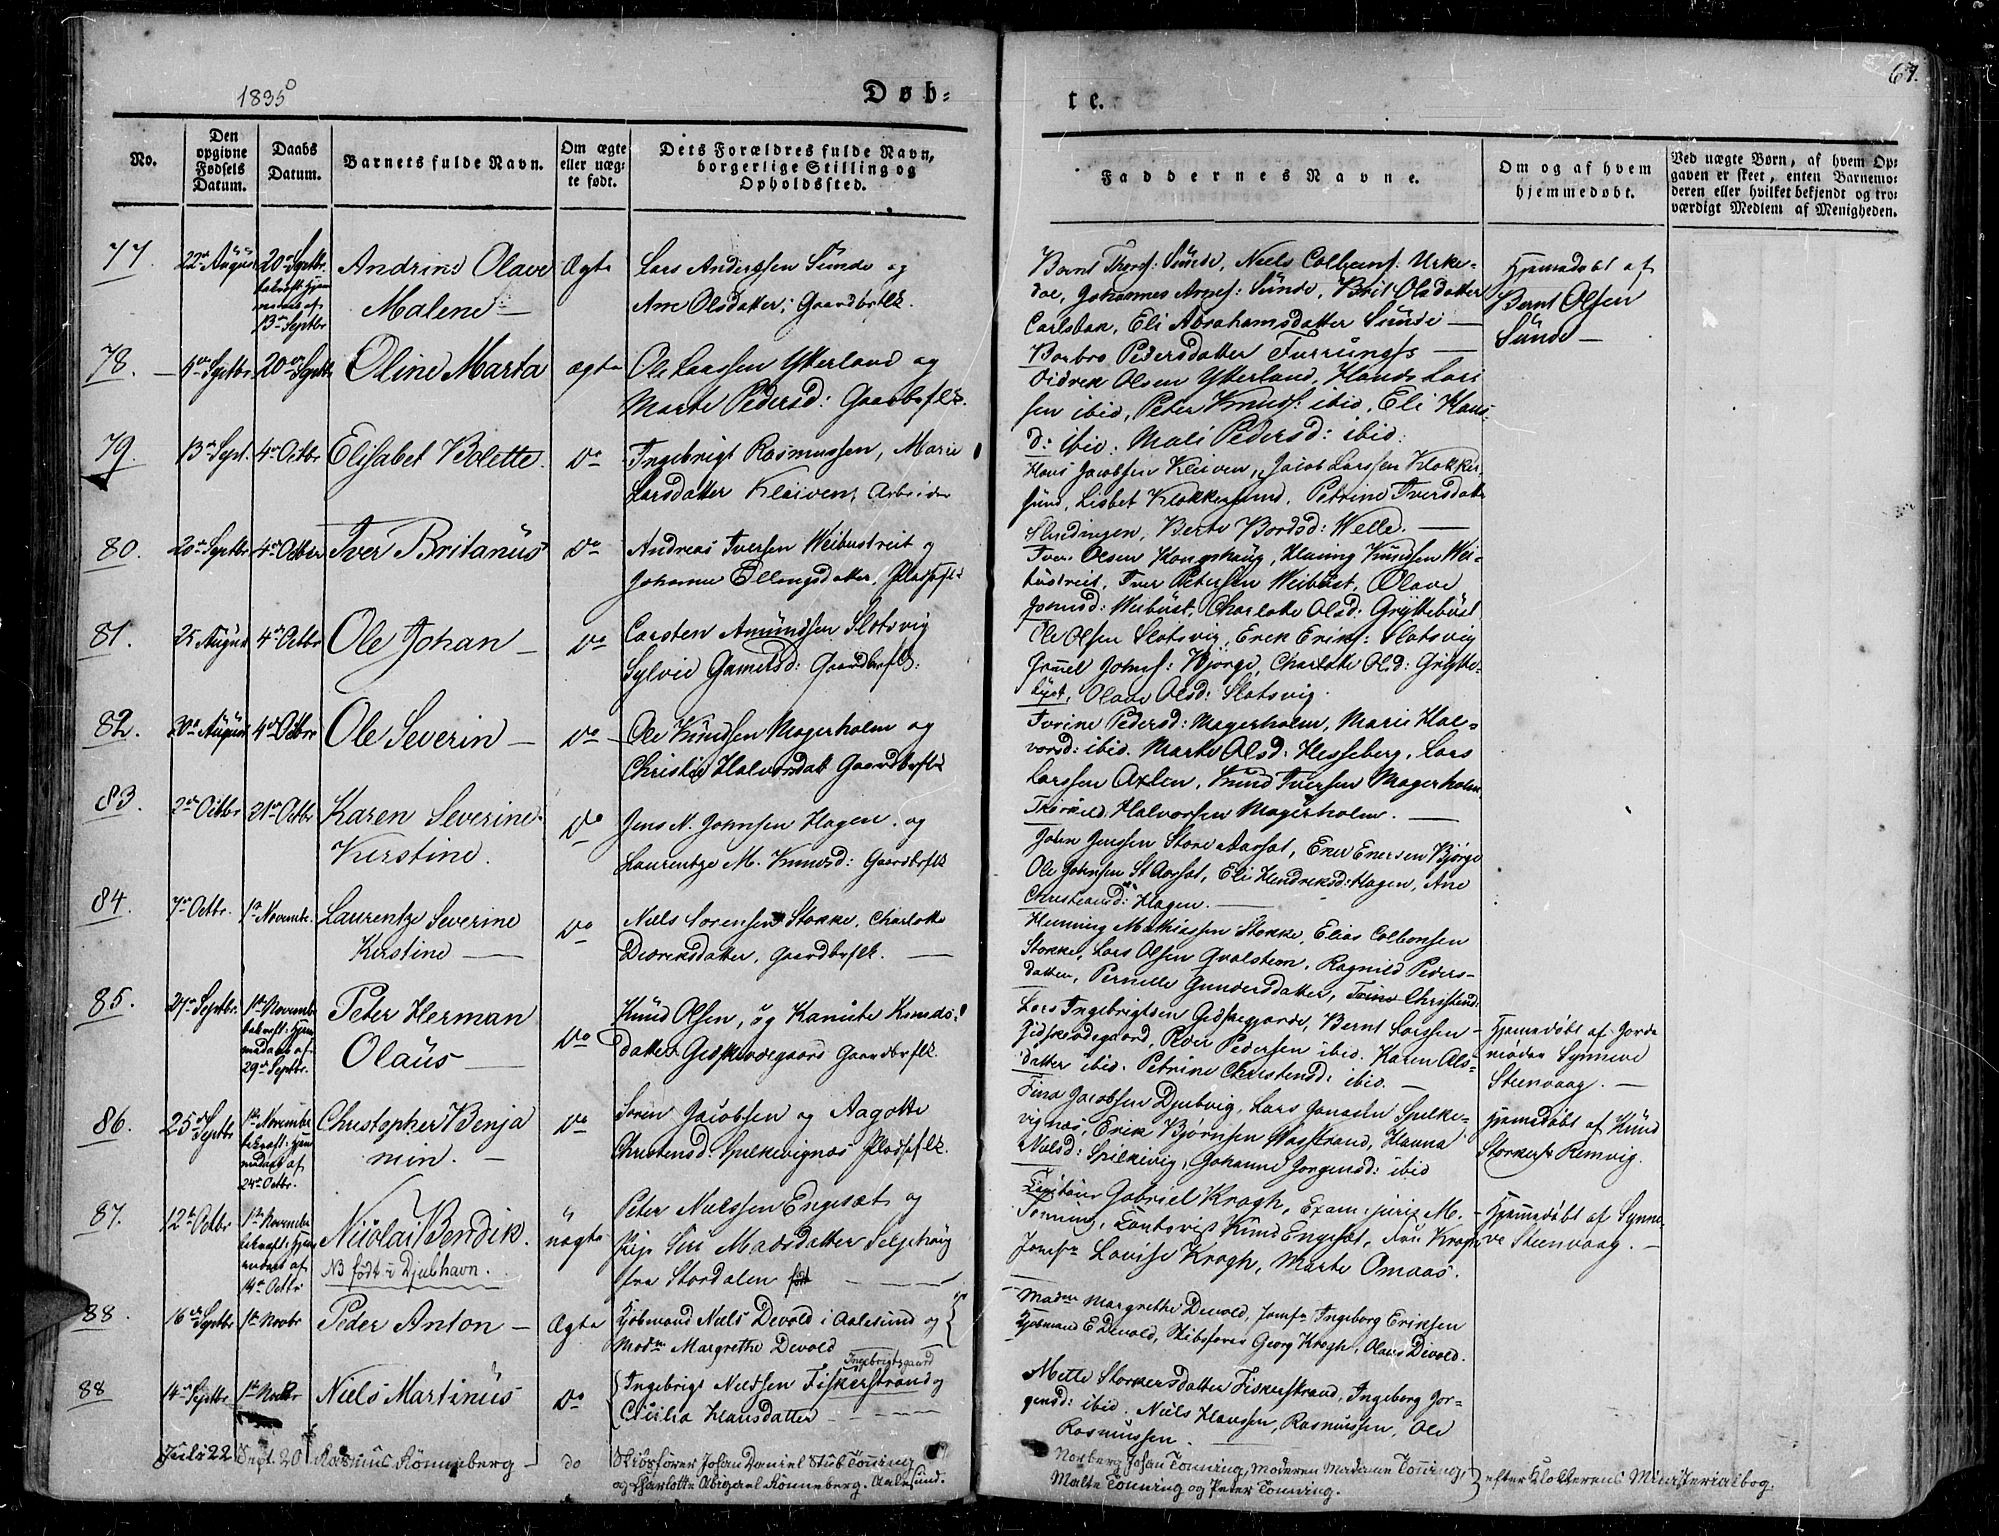 1835
Døb-
te.
67.
No.
Den opgivne Fødsels Datum.
Daabs Datum.
Barnets fulde Navn.
Om ægte eller uæg- te født.
Dets Forældres fulde Navn, borgerlige Stilling og Opholdssted.
Faddernes Navne.
Om og af hvem hjemmedøbt.
Ved uægte Børn, af hvem Op-
gaven er skeet, enten Barnemo-
deren eller hvilket bekjendt og tro-
værdigt Medlem af Menigheden.
77. 22de August 20de Septbr. Andrine Olave Ægte Lars Anderssen Sunde og
Malene
13de Septbr
Ane Olsdatter, Gaardbrflk.
Bernt Sunde, Niels
Johannes Sunde, Brit Olsdatter
Eli Abrahamsdatter Sunde
Barbro Pedersdatter
Hjemmedøbt af
Bernt Olsen
Sunde
78. Septbr 20de Septbr Oline Marta ægte Ole Larssen Ytterland og
Marte Pedersd: Gaardbrflk.
Didrik Olsen Ytterland, Hans Lars
sen ibid, Peter ibid, Eli Hans
d: ibid: Mali Pedersd: ibid:
79. 13de Sept. 4de Octbr Elisabet Bolette. do Ingebrigt Rasmussen, Marie
Larsdatter Kleiven, Arbeider
Hans Jacobsen Kleiven, Jacob Larssen Klokker-
sund, Lisbet Klokkersund, Petrine Iversdatter
Berte Bordsd: Welle.
80. 20de Septbr 4de Octbr Iver Britanus do Andreas Iversen Weibustreit og
Johanne Ellingsdatter, Pladsflk
Iver Olsen Kongshaug, Knudsen Wei-
bustreit, Iver Petersen Weibust, Olave
Weibust, Charlotte Olsd: Gryttebust
81. 25 August 4de Octbr Ole Johan do Carsten Amundsen Slotsvig
Sylvie Gamelsd: Gaardbrflk:
Ole Olsen Slotsvig, Erik Eriks: Slotsvig
Bjørge, Charlotte Olsd: Grytte-
bust, Olave Olsd: Slotsvig.
82. 30de August 4de Octbr Ole Severin do Ole Knudsen Magerholm og
Christie Halvorsdatt Gaardbrflk
Iverine Pedersd: Magerholm, Marie Hal-
vorsd: ibid. Marte Olsd: Hesseberg, Lars
Larssen Axlen, Knud Iversen Magerholm
Halvorsen Magerholm.
83. 2de Octbr 21de Octbr Karen Severine do Jens N. Johnsen Hagen, og
Kirstine.
Laurentze M. Knudsd: Gaardbrflk
John Jenssen Store Aarset, Ener Enersen Bjørge
Ole Johnsen St Aarset, Eli Hendriksd: Hagen, Ane
Christiansd: Hagen.
84. 7de Octbr. 1ste Novembr. Laurentze Severine do Niels Sørensen Stokke, Charlotte
Kirstine
Didriksdatter, Gaardbrflk.
Henning Mathiassen Stokke, Elias Colbensen
Stokke, Lars Olsen Qvalsteen, Ragnild Peders-
datter, Pernelle Gundersdatter, Trine Christensd:
85. 27de Septbr. 1ste Novembr Peter Herman do Knud Olsen, og Kanute Knuds-
29de Septbr.
Olaüs
datter Gidskeødegaard Gaardbrflk.
Lars Ingebrigtsen Gidskegjerde, Bernt Larssen
Gidskeødegaard, Roer Pedersen ibid. Karen Ols-
datter ibid. Petrine Christensd: ibid.
Hjemmedøbt af Jorde
moder Synneve
Steenvaag.
86. 25de Septbr 1ste Novembr Christopher Benja do Søren Jacobsen og Aagotte
min.
24de Octbr.
Christensd. Spilkevignæs Pladsflk.
Jacobsen Djubvig, Lars Jonassen Spilke-
vignæs, Erik Bjørnsen Wagstrand, Hanna
Nilsd: Spilkevig, Johanne Jorgensd: ibid
Hjemmedøbt af Knud
Storkers: Remvig.
87. 12te Octbr 1ste Novembr Nicolai Bendik. uægte Peter Nielssen Engesæt og
14de Octbr
NB født i Djubhavn.
Pige Siri Madsdatter Seljehoug
fra Stordalen født
Gabriel Krogh, Exam: juris M.
Tønning, Knud Engeset, Fru Krogh
Jomfr Louise Krogh, Marte Omaas.
Hjemmedøbt af Synne-
ve Steenvaag.
88. 16de Septbr 1ste Novbr Peder Anton Ægte Kjøbmand Niels Devold i Aalesund og
Madme Margrethe Devold
Madm Margrethe Devold, Jomfr Ingeborg Eriksen
Kjøbmand E Devold, Skibsfører Georg Krogh, Olaus Devold.
88 14de Septbr 1ste Novbr Niels Martinus do Ingebrigt Nielssen Fiskerstrand og
Ingebrigtsgaard
Cicilia Hansdatter
Mette Storkersdatter Fiskerstrand, Ingeborg Jor-
gensd: ibid. Niels Hanssen, Rasmussen, Ole
Rasmussen.
Juli 22 Sept. 20 Rasmus Rønneberg do Skibsfører Johan Daniel Stub Tønning
og Charlotte Abigael Rønneberg. Aalesund.
Norberg Johan Tonning, Moderen Madame Tonning,
Malte Tonning og Peter Tonning.
efter Klokkerens Ministerialbog.